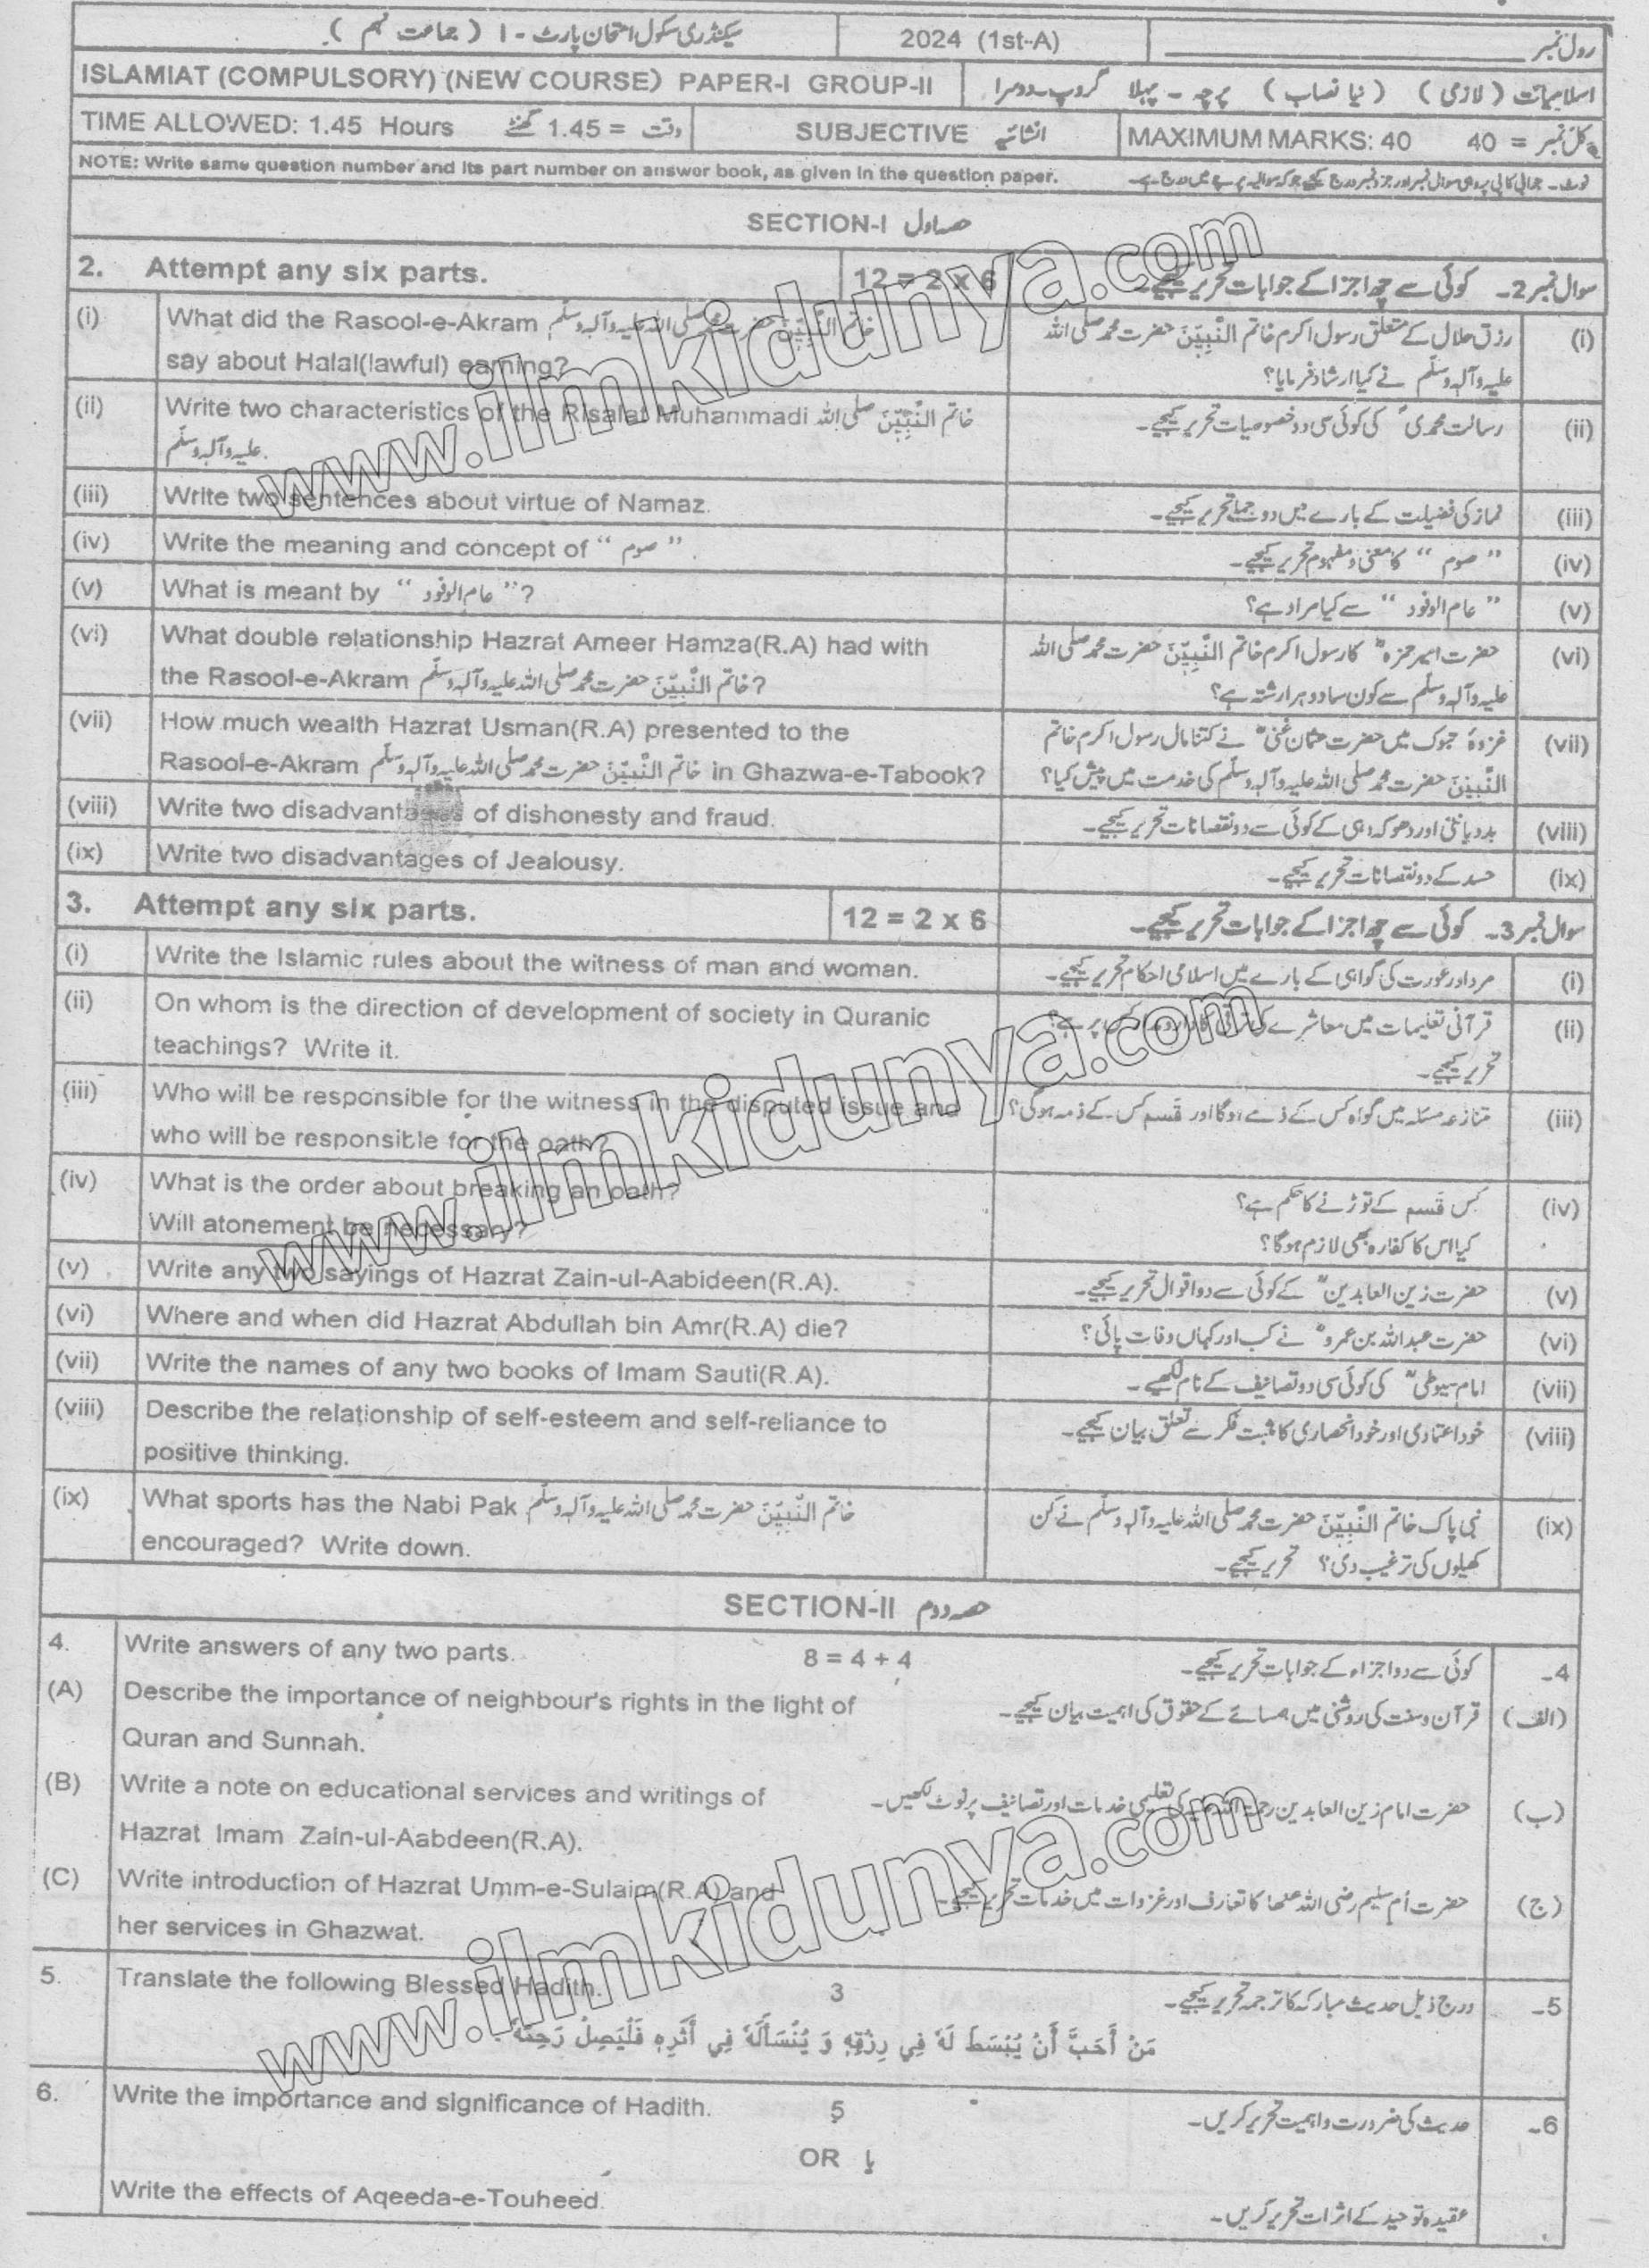 سیکنڈری سکول امتحان پارٹ - I ( جماعت نہم ).
2024 (1st-A)
رول نمبر
ISLAMIAT (COMPULSORY) (NEW COURSE) PAPER-I GROUP-II
اسلامیات ( لازمی ) ( نیا نصاب ) پرچہ - پہلا گروپ-دوسرا
TIME ALLOWED: 1.45 Hours
وقت = 1.45 گھنٹے
SUBJECTIVE انشائیہ
MAXIMUM MARKS: 40
کل نمبر = 40
NOTE: Write same question number and its part number on answer book, as given in the question paper.
نوٹ۔ جوابی کاپی پر وہی سوال نمبر اور جزو نمبر درج کیجیے جو کہ سوالیہ پرچے میں درج ہے۔
SECTION-I حصہ اول
2. Attempt any six parts.
12 = 2 x 6
سوال نمبر 2۔ کوئی سے چھ اجزا کے جوابات تحریر کیجیے۔
(i) What did the Rasool-e-Akram خاتم النَّبِیّٖنَ حضرت محمد صلی اللہ علیہ وآلہ وسلّم
say about Halal(lawful) earning?
رزق حلال کے متعلق رسول اکرم خاتم النَّبِیّٖنَ حضرت محمد صلی اللہ (i)
علیہ وآلہ وسلّم نے کیا ارشاد فرمایا؟
(ii) Write two characteristics of the Risalat Muhammadi خاتم النَّبِیّٖنَ صلی اللہ
علیہ وآلہ وسلّم.
رسالت محمدیؐ کی کوئی سی دو خصوصیات تحریر کیجیے۔ (ii)
(iii) Write two sentences about virtue of Namaz.
نماز کی فضیلت کے بارے میں دو جملے تحریر کیجیے۔ (iii)
(iv) Write the meaning and concept of “ صوم ” .
” صوم “ کا معنی و مفہوم تحریر کیجیے۔ (iv)
(v) What is meant by “ عام الوفود ”?
” عام الوفود “ سے کیا مراد ہے؟ (v)
(vi) What double relationship Hazrat Ameer Hamza(R.A) had with
the Rasool-e-Akram خاتم النَّبِیّٖنَ حضرت محمد صلی اللہ علیہ وآلہ وسلّم?
حضرت امیر حمزہؓ کا رسول اکرم خاتم النَّبِیّٖنَ حضرت محمد صلی اللہ (vi)
علیہ وآلہ وسلّم سے کون سا دوہرا رشتہ ہے؟
(vii) How much wealth Hazrat Usman(R.A) presented to the
Rasool-e-Akram خاتم النَّبِیّٖنَ حضرت محمد صلی اللہ علیہ وآلہ وسلّم in Ghazwa-e-Tabook?
غزوۂ تبوک میں حضرت عثمان غنیؓ نے کتنا مال رسول اکرم خاتم (vii)
النَّبِیّٖنَ حضرت محمد صلی اللہ علیہ وآلہ وسلّم کی خدمت میں پیش کیا؟
(viii) Write two disadvantages of dishonesty and fraud.
بددیانتی اور دھوکہ دہی کے کوئی سے دو نقصانات تحریر کیجیے۔ (viii)
(ix) Write two disadvantages of Jealousy.
حسد کے دو نقصانات تحریر کیجیے۔ (ix)
3. Attempt any six parts.
12 = 2 x 6
سوال نمبر 3۔ کوئی سے چھ اجزا کے جوابات تحریر کیجیے۔
(i) Write the Islamic rules about the witness of man and woman.
مرد اور عورت کی گواہی کے بارے میں اسلامی احکام تحریر کیجیے۔ (i)
(ii) On whom is the direction of development of society in Quranic
teachings? Write it.
قرآنی تعلیمات میں معاشرے کی ترقی کا دارومدار کس پر ہے؟ (ii)
تحریر کیجیے۔
(iii) Who will be responsible for the witness in the disputed issue and
who will be responsible for the oath?
متنازعہ مسئلہ میں گواہ کس کے ذمے ہوگا اور قَسم کس کے ذمہ ہوگی؟ (iii)
(iv) What is the order about breaking an oath?
Will atonement be necessary?
کس قَسم کے توڑنے کا حکم ہے؟ (iv)
کیا اس کا کفارہ بھی لازم ہوگا؟
(v) Write any two sayings of Hazrat Zain-ul-Aabideen(R.A).
حضرت زین العابدینؒ کے کوئی سے دو اقوال تحریر کیجیے۔ (v)
(vi) Where and when did Hazrat Abdullah bin Amr(R.A) die?
حضرت عبداللہ بن عمروؓ نے کب اور کہاں وفات پائی؟ (vi)
(vii) Write the names of any two books of Imam Sauti(R.A).
امام سیوطیؒ کی کوئی سی دو تصانیف کے نام لکھیے۔ (vii)
(viii) Describe the relationship of self-esteem and self-reliance to
positive thinking.
خود اعتمادی اور خود انحصاری کا مثبت فکر سے تعلق بیان کیجیے۔ (viii)
(ix) What sports has the Nabi Pak خاتم النَّبِیّٖنَ حضرت محمد صلی اللہ علیہ وآلہ وسلّم
encouraged? Write down.
نبی پاک خاتم النَّبِیّٖنَ حضرت محمد صلی اللہ علیہ وآلہ وسلّم نے کن (ix)
کھیلوں کی ترغیب دی؟ تحریر کیجیے۔
SECTION-II حصہ دوم
4. Write answers of any two parts.
8 = 4 + 4
کوئی سے دو اجزاء کے جوابات تحریر کیجیے۔ 4۔
(A) Describe the importance of neighbour's rights in the light of
Quran and Sunnah.
(الف) قرآن و سنت کی روشنی میں ہمسائے کے حقوق کی اہمیت بیان کیجیے۔
(B) Write a note on educational services and writings of
Hazrat Imam Zain-ul-Aabdeen(R.A).
(ب) حضرت امام زین العابدین رحمۃ اللہ علیہ کی تعلیمی خدمات اور تصانیف پر نوٹ لکھیں۔
(C) Write introduction of Hazrat Umm-e-Sulaim(R.A) and
her services in Ghazwat.
(ج) حضرت اُم سلیم رضی اللہ عنھا کا تعارف اور غزوات میں خدمات تحریر کیجیے۔
5. Translate the following Blessed Hadith.
3
درج ذیل حدیث مبارکہ کا ترجمہ تحریر کیجیے۔ 5۔
مَنْ أَحَبَّ أَنْ يُبْسَطَ لَهٗ فِي رِزْقِهٖ وَ يُنْسَأَلَهٗ فِي أَثَرِهٖ فَلْيَصِلْ رَحِمَهٗ .
6. Write the importance and significance of Hadith.
5
حدیث کی ضرورت و اہمیت تحریر کریں۔ 6۔
OR یا
Write the effects of Aqeeda-e-Touheed.
عقیدہ توحید کے اثرات تحریر کریں۔
www.ilmkidunya.com
www.ilmkidunya.com
www.ilmkidunya.com